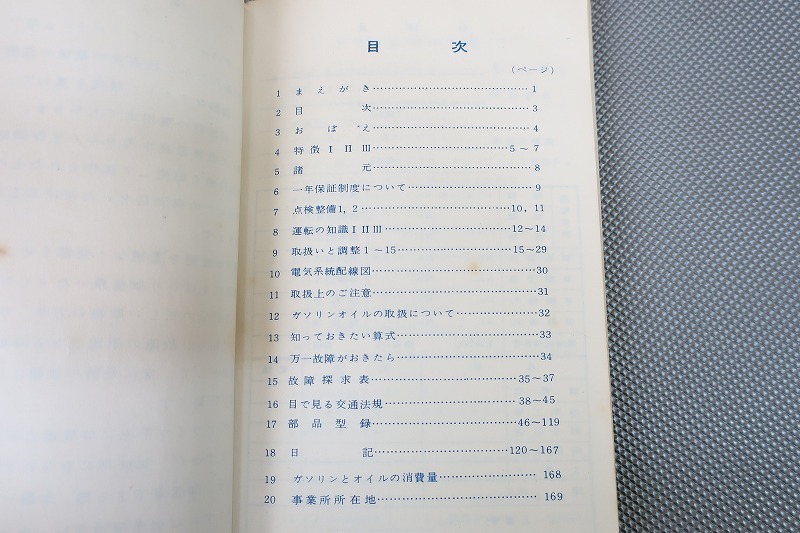 目 次
(ページ)
1 まえがき…………………………………1
2 目 次…………………………………3
3 おぼえ…………………………………4
4 特徴ⅠⅡⅢ……………………………5～7
5 諸 元…………………………………8
6 一年保証制度について…………………………9
7 点検整備1, 2………………………………10, 11
8 運転の知識ⅠⅡⅢ…………………………12～14
9 取扱いと調整1～15………………………15～29
10 電気系統配線図………………………………30
11 取扱上のご注意………………………………31
12 ガソリンオイルの取扱について…………………32
13 知っておきたい算式……………………………33
14 万一故障がおきたら……………………………34
15 故障探求表………………………………35～37
16 目で見る交通法規…………………………38～45
17 部品型録………………………………46～119
18 日 記………………………………120～167
19 ガソリンとオイルの消費量……………………168
20 事業所所在地…………………………………169